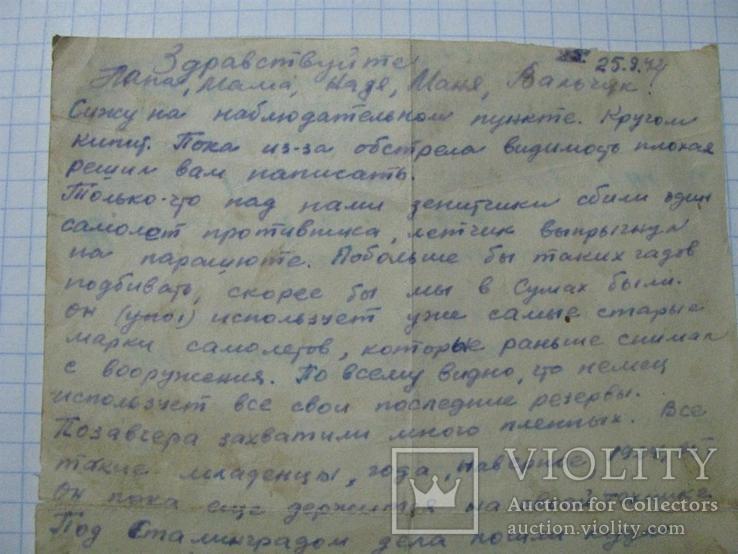 Здравствуйте 25.9.42
Папа, Мама, Надя, Маня, Вальчик!
Сижу на наблюдательном пункте. Кругом
кипит. Пока из-за обстрела видимость плохая
решил вам написать.
Только-что над нами зенитчики сбили один
самолет противника, летчик выпрыгнул
на парашюте. Побольше бы таких гадов
подбивать, скорее бы мы в Сумах были.
Он использует уже самые старые
марки самолетов, которые раньше снимал
с вооружения. По всему видно, что немец
использует все свои последние резервы.
Позавчера захватили много пленных. Все
такие младенцы, года, наверное
Он пока еще держится на
Под Сталинградом дела пошли
VIOLITY
Auction for Collectors
auction.violity.com